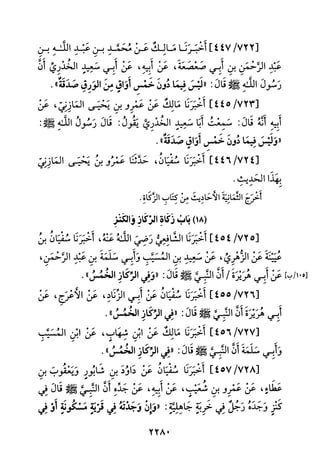 [٤٤٧/٧٢٢] أَخْبَرَنَـا مَـالِـكٌ عَـنْ مُحَمَّدِ بـنِ عَبْـدِ اللَّـهِ بـنِ
عَبْدِ الرَّحْمَنِ بنِ أَبِـي صَعْصَعَةَ، عَنْ أَبِيهِ، عَنْ أَبِـي سَعِيدٍ الخُدْرِيِّ أَنَّ
رَسُولَ اللَّـهِ ﷺ قَالَ: «لَيْسَ فِيمَا دُونَ خَمْسِ أَوَاقٍ مِنَ الوَرِقِ صَدَقَةٌ».
[٤٤٥/٧٢٣] أَخْبَرَنَا مَالِكٌ عَنْ عَمْرِو بنِ يَحْيَـى المَازِنِيِّ، عَنْ
أَبِيهِ أَنَّهُ قَالَ: سَمِعْتُ أَبَا سَعِيدٍ الخُدْرِيَّ يَقُولُ: قَالَ رَسُولُ اللَّـهِ ﷺ:
«وَلَيْسَ فِيمَا دُونَ خَمْسِ أَوَاقٍ صَدَقَةٌ».
[٤٤٦/٧٢٤] أَخْبَرَنَا سُفْيَانُ، حَدَّثَنَا عَمْرُو بنُ يَحْيَـى المَازِنِيُّ
بِهَذَا الحَدِيثِ.
أَخْرَجَ الثَّمَانِيَةَ الأَحَادِيثَ مِنْ كِتَابِ الزَّكَاةِ.
(١٨) بَابُ زَكَاةِ الرِّكَازِ وَالكَنْزِ
[٤٥٤/٧٢٥] أَخْبَرَنَا الشَّافِعِيُّ رَضِيَ اللَّهُ عَنْهُ، أَخْبَرَنَا سُفْيَانُ بنُ
عُيَيْنَةَ عَنِ الزُّهْرِيِّ، عَنْ سَعِيدِ بنِ المُسَيَّبِ وَأَبِـي سَلَمَةَ بنِ عَبْدِ الرَّحْمَنِ،
[١٠٥/ب] عَنْ أَبِـي هُرَيْرَةَ / أَنَّ النَّبِـيَّ ﷺ قَالَ: «وَفِي الرِّكَازِ الخُمُسُ».
[٤٥٥/٧٢٦] أَخْبَرَنَا سُفْيَانُ عَنْ أَبِـي الزِّنَادِ، عَنِ الأَعْرَجِ، عَنْ
أَبِـي هُرَيْرَةَ أَنَّ النَّبِـيَّ ﷺ قَالَ: «فِي الرِّكَازِ الخُمُسُ».
[٤٥٦/٧٢٧] أَخْبَرَنَا مَالِكٌ عَنِ ابْنِ شِهَابٍ، عَنِ ابْنِ المُسَيَّبِ
وَأَبِـي سَلَمَةَ أَنَّ النَّبِـيَّ ﷺ قَالَ: «فِي الرِّكَازِ الخُمُسُ».
[٤٥٧/٧٢٨] أَخْبَرَنَا سُفْيَانُ عَنْ دَاوُدَ بنِ شَابُورَ وَيَعْقُوبَ بنِ
عَطَاءٍ، عَنْ عَمْرِو بنِ شُعَيْبٍ، عَنْ أَبِيهِ، عَنْ جَدِّهِ أَنَّ النَّبِـيَّ ﷺ قَالَ فِي
كَنْزٍ وَجَدَهُ رَجُلٌ فِي خَرِبَةٍ جَاهِلِيَّةٍ: «إِنْ وَجَدْتَهُ فِي قَرْيَةٍ مَسْكُونَةٍ أَوْ فِي
٢٢٨٠